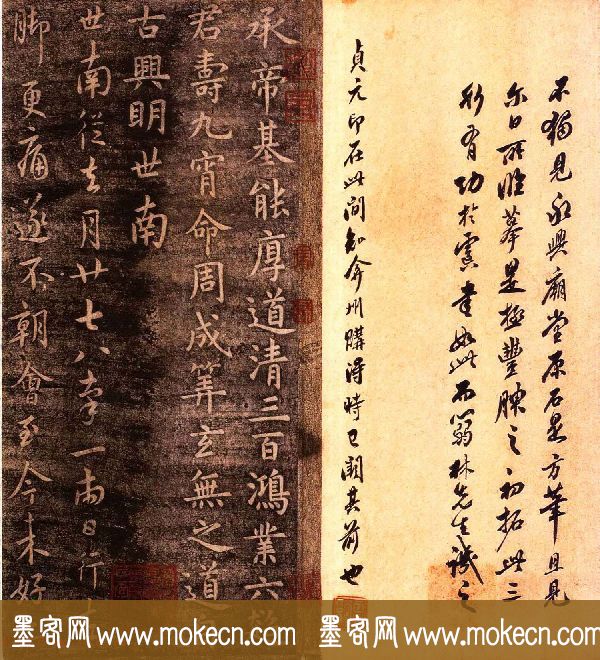 不獨見永興廟堂原石是方筆且見
尔日所臨摹是極豐腴之初拓此三
有功於虞書如此而林先生識之
貞元印在此間知弇州購得時已闕其前也
承帝基能厚道清三百鴻業六
君壽九宵命周成筭玄無之道
古興明世南
世南從去月廿七八率一兩日行左
脚更痛遂不朝會至今未好
墨客网 www.mokecn.com 墨客网 www.mokecn.com